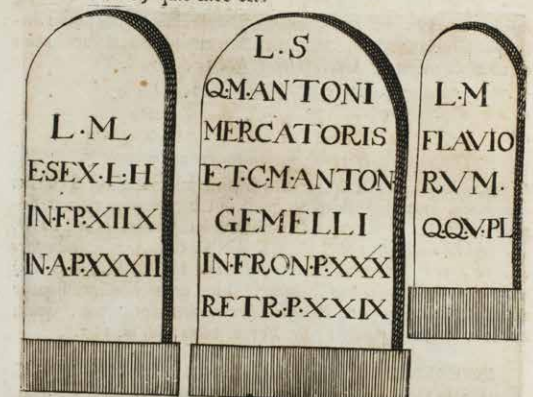 L·M
E·SEX·L·H
IN·F·P·XIIX
IN·A·P·XXXII
L·S
Q·M·ANTONI
MERCATORIS
ET·C·M·ANTON
GEMELLI
IN·FRON·P·XXX
RETR·P·XXIX
L·M
FLAVIO
RVM·
Q·Q·V·PL